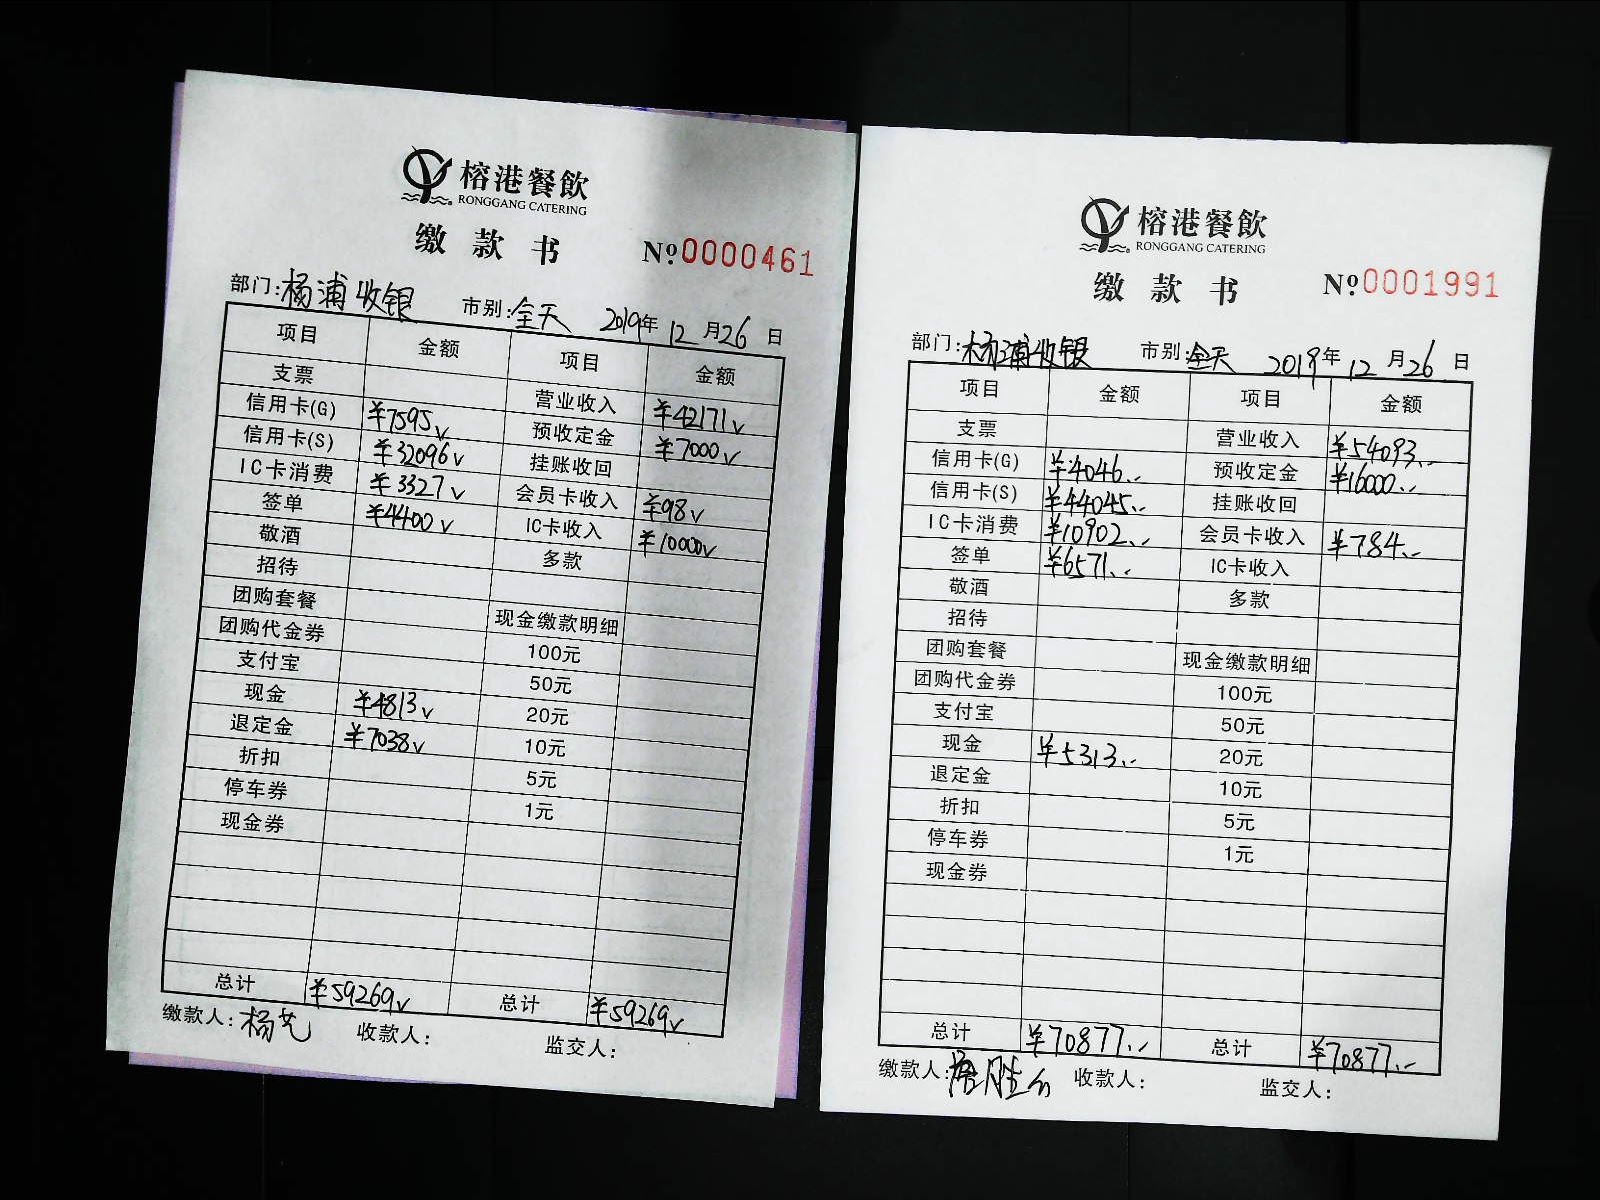 榕港餐飲
RONGGANG CATERING
缴款书
№0000461
部门:杨浦收银 市别:全天 2019年12月26日
项目 金额 项目 金额
支票 营业收入 ¥42171
信用卡(G) ¥7595 预收定金 ¥7000
信用卡(S) ¥32096 挂账收回
IC卡消费 ¥3327 会员卡收入 ¥98
签单 ¥4400 IC卡收入 ¥10000
敬酒 多款
招待
团购套餐 现金缴款明细
团购代金券 100元
支付宝 50元
现金 ¥4813 20元
退定金 ¥7038 10元
折扣 5元
停车券 1元
现金券
总计 ¥59269 总计 ¥59269
缴款人:杨艺 收款人: 监交人:
榕港餐飲
RONGGANG CATERING
缴款书
№0001991
部门:杨浦收银 市别:全天 2019年12月26日
项目 金额 项目 金额
支票 营业收入 ¥54093.-
信用卡(G) ¥4046.- 预收定金 ¥16000.-
信用卡(S) ¥44045.- 挂账收回
IC卡消费 ¥10902.- 会员卡收入 ¥784.-
签单 ¥6571.- IC卡收入
敬酒 多款
招待
团购套餐 现金缴款明细
团购代金券 100元
支付宝 50元
现金 ¥5313.- 20元
退定金 10元
折扣 5元
停车券 1元
现金券
总计 ¥70877.- 总计 ¥70877.-
缴款人: 收款人: 监交人: